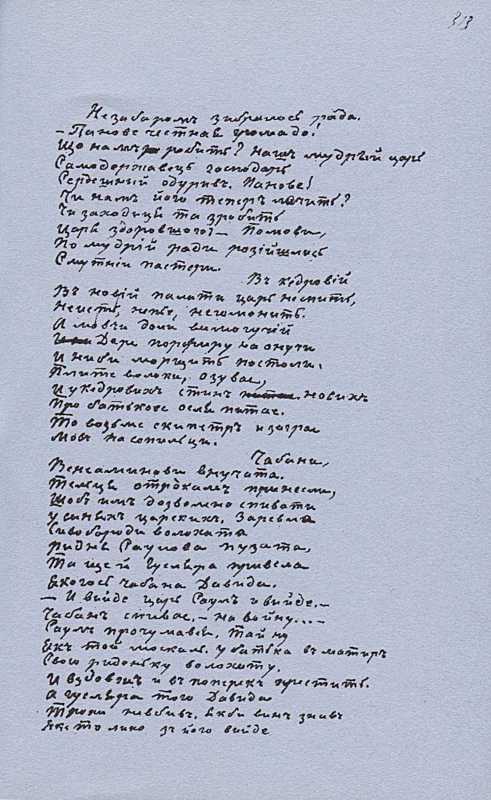 313
Незабаромъ зибралась рада.
— Панове честная громадо!
Що намъ робить? Нашъ мудрый царь
Самодержавець господарь
Сердешный одуривъ. Панове!
Чи намъ його теперъ лічить?
Чи заходицця та зробить
Царя здоровшого? — Помови,
По мудрій ради розійшлись
Смутніи пастыри.
Въ кедровій
Въ новій палати царь неспить,
Неистъ, непье, неговорить.
А мовчи долі
Дере порфиру на онучи
И ниби морщить постоли,
Плите волоки, озувае,
И укедровихъ стинъ новихъ
Про батькове осля питае.
То возьме скипетръ и заграе
Мовъ на сопильци.
Чабани,
Венеаминови внучата.
Тельця отрокамъ принесли,
Щобъ имъ дозволено спивати
У синыхъ царскихъ. Заревла
Сивобороди волохата
Ридня Саулова пузата,
Та ще й Гусляра привела
Якогось чабана Давида.
— И выйде царь Саулъ и выйде, —
Чабанъ спивае, — на войну... —
Саулъ прочумавсь. Тай ну
Якъ той москаль, у батька въ матиръ
Свою ридоньку волохату,
И вздовжъ и въ поперекъ хрестить.
А гусляра того Давида
Трохи невбивъ. Якби винъ знавъ
Яке то лихо зъ його выйде